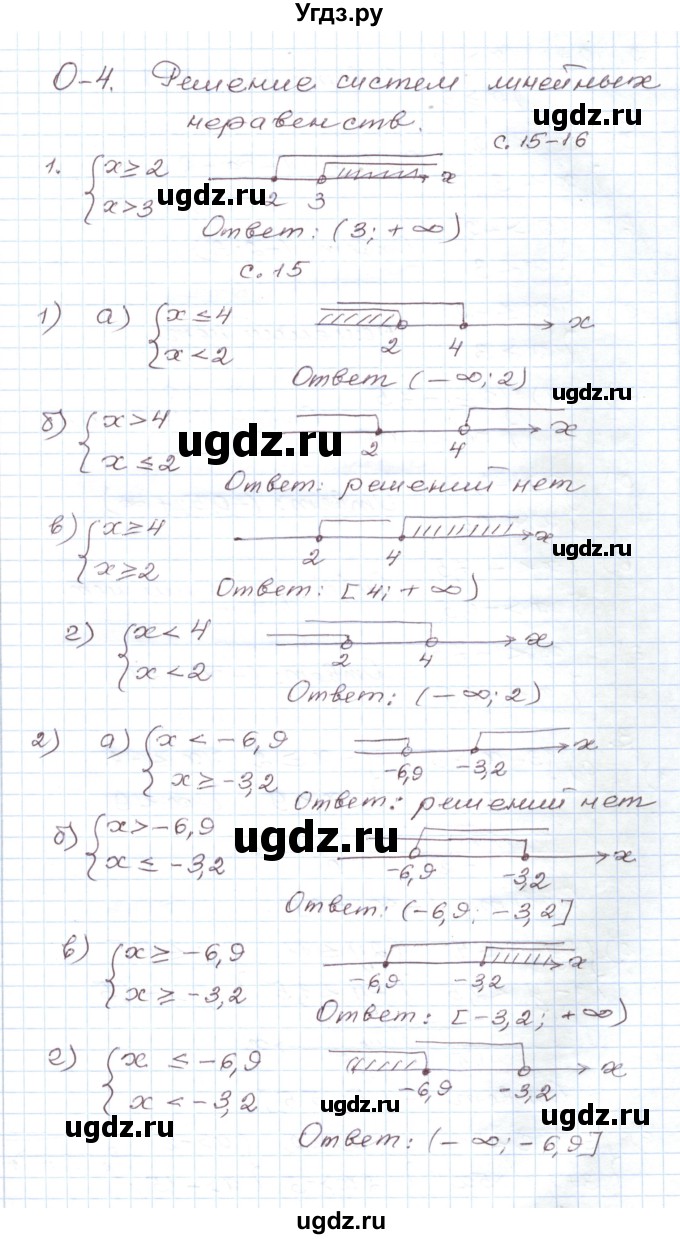 Угдз.ру
О-4. Решение систем линейных
ugdz.ru
неравенств.
с. 15-16
1. { x ≥ 2
x > 3
2 3 x
ugdz.ru
Ответ: (3; +∞)
с. 15
1) а) { x ≤ 4
x < 2
2 4 x
Ответ (-∞; 2)
ugdz.ru
б) { x > 4
x ≤ 2
2 4 x
ugdz.ru
Ответ: решений нет
в) { x ≥ 4
x ≥ 2
2 4 x
ugdz.ru
Ответ: [4; +∞)
г) { x < 4
x < 2
2 4 x
Ответ: (-∞; 2)
2) а) { x < -6,9
x ≥ -3,2
-6,9 -3,2 x
Ответ: решений нет
б) { x > -6,9
x ≤ -3,2
ugdz.ru
-6,9 -3,2 x
Ответ: (-6,9; -3,2]
в) { x ≥ -6,9
x ≥ -3,2
-6,9 -3,2 x
Ответ: [-3,2; +∞)
г) { x ≤ -6,9
x < -3,2
-6,9 -3,2 x
ugdz.ru
ugdz.ru
ugdz.ru
Ответ: (-∞; -6,9]
ugdz.ru